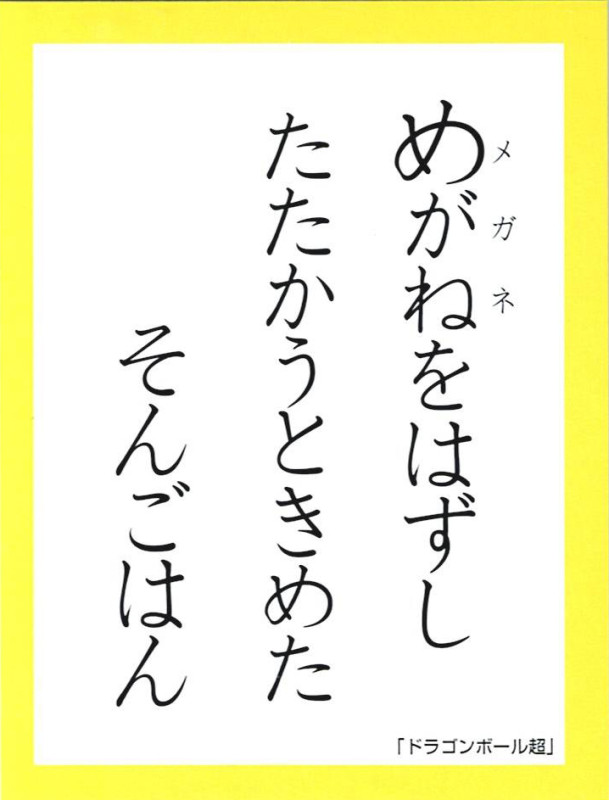 めがねをはずし
メガネ
たたかうときめた
そんごはん
「ドラゴンボール超」